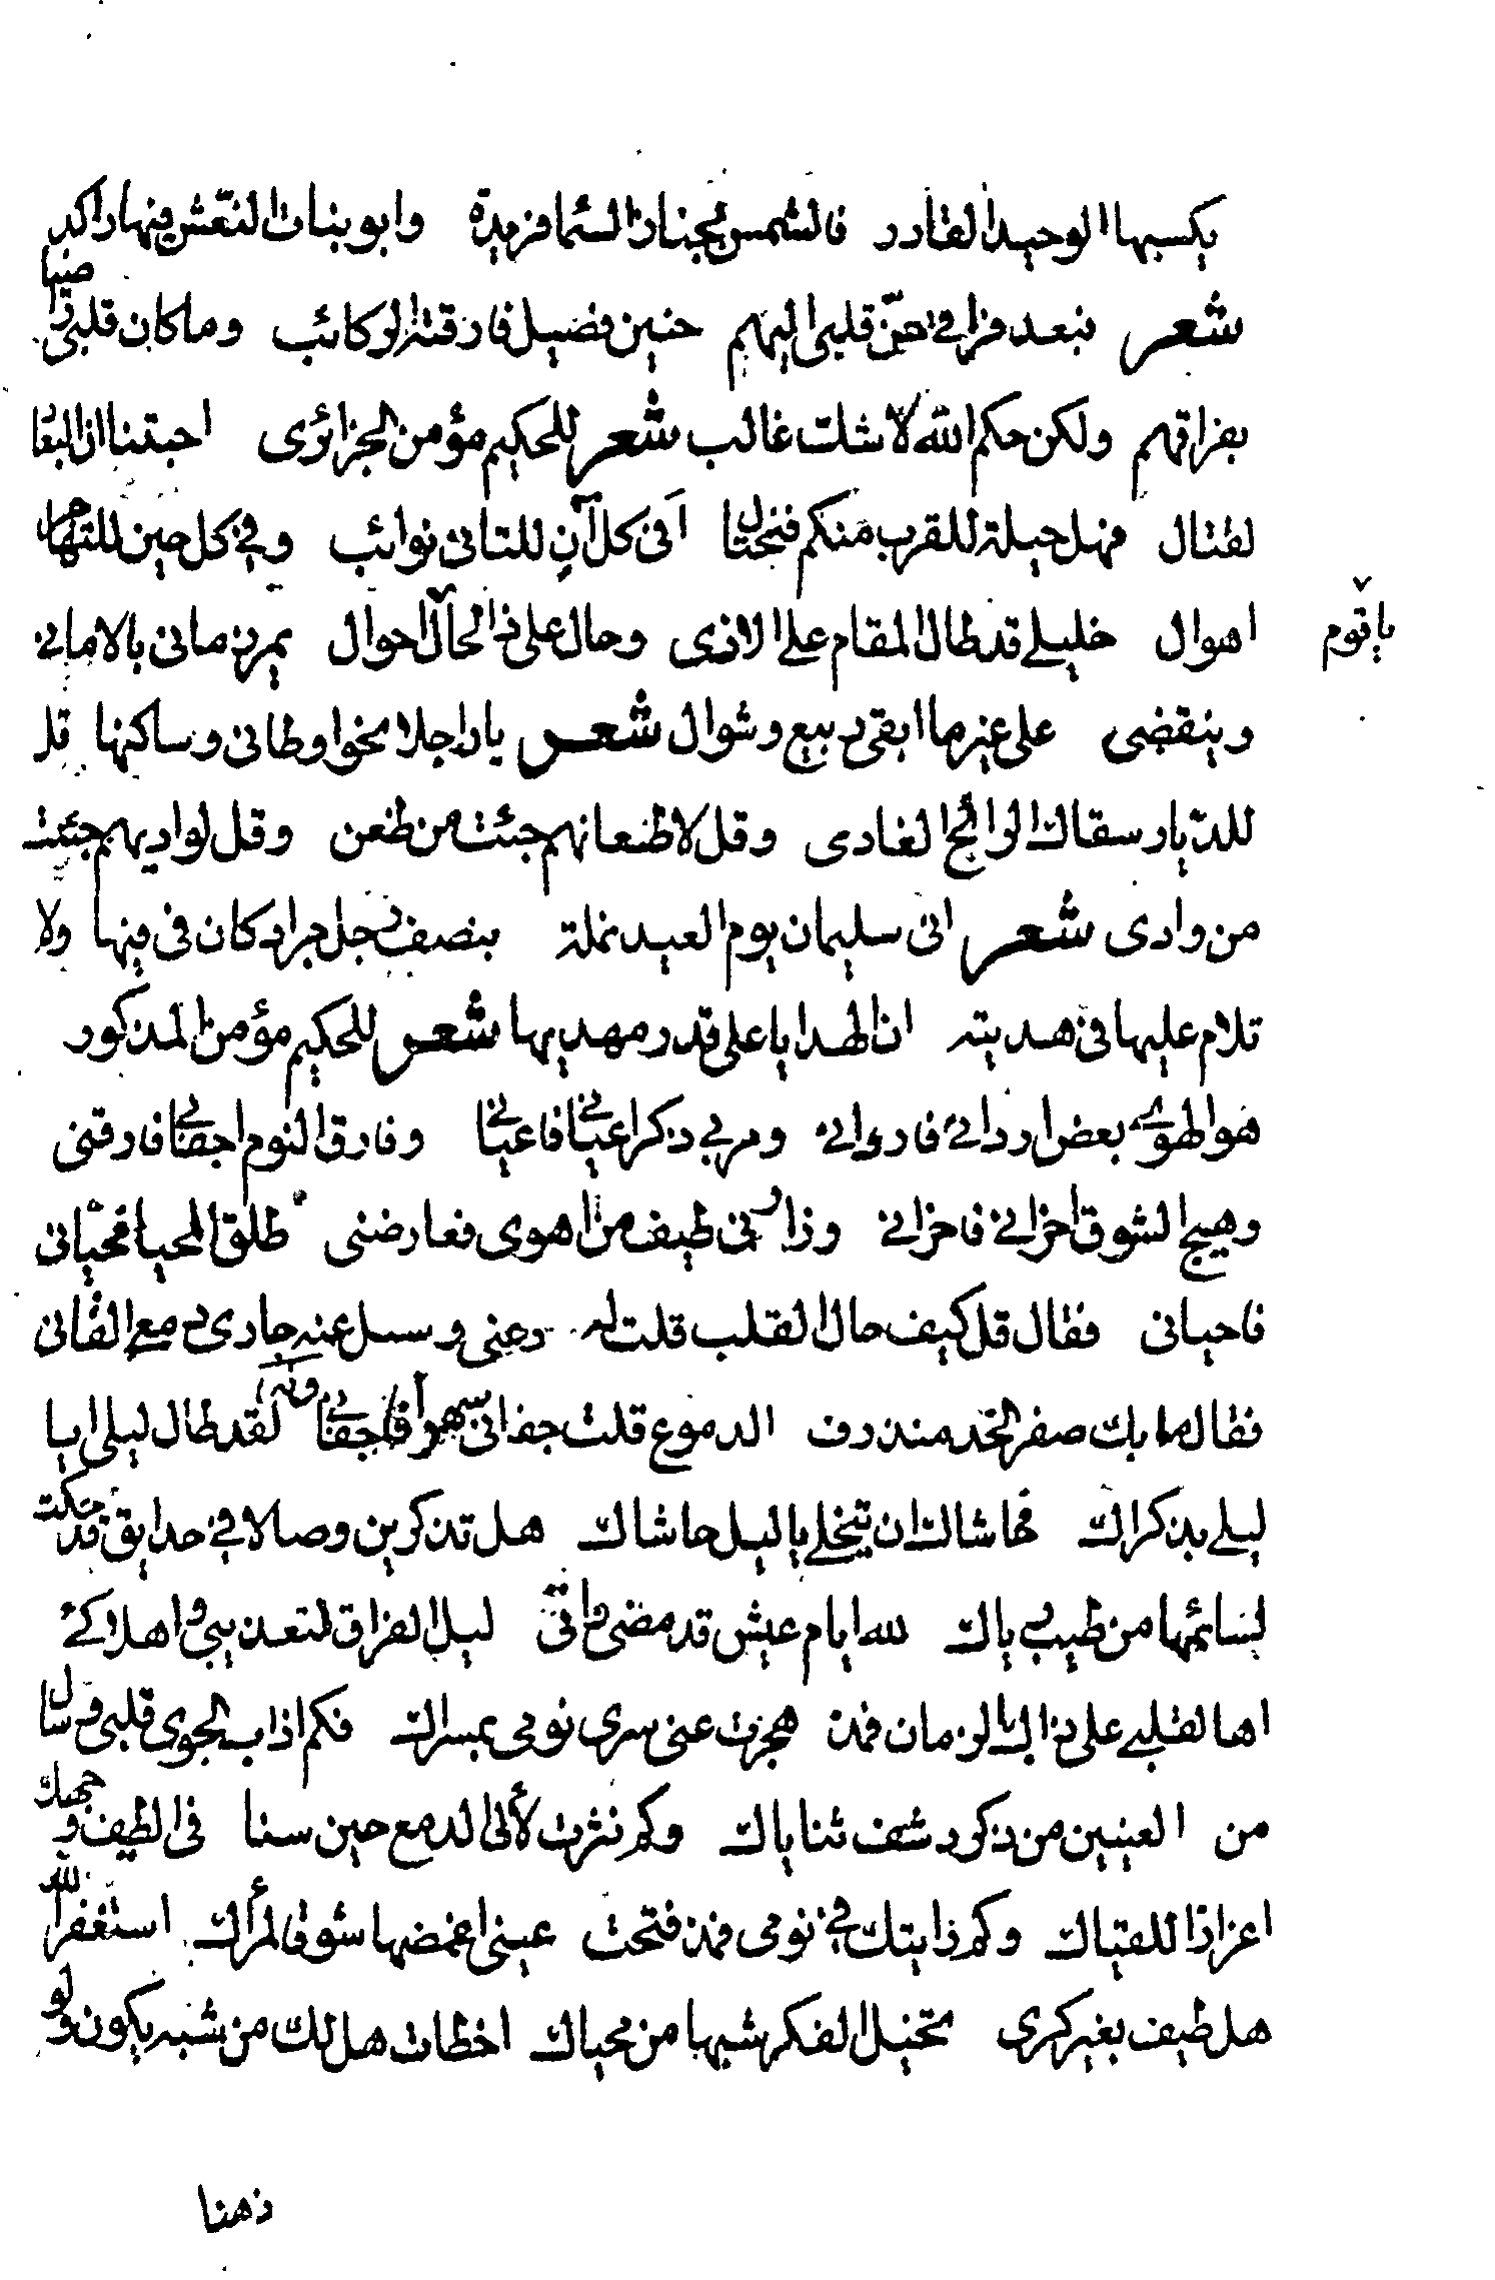 يكسبها الوحيد القادر فالشمس تجتاز السما فريدة وابو بنات النعش فيها راكد
شعر فبعد فراقي حنّ قلبي اليهم حنين فصيل فارقته الركائب وما كان قلبي راضيا
بفراقهم ولكن حكم الله لا شك غالب شعر للحكيم مؤمن الجزائري احبتنا ان البقا
لقتال فهل حيلة للقرب منكم فنحتال أفى كل آنٍ للتنائى نوائب وفي كل حين للتهاجر
اهوال خليلي قد طال المقام على الاذى وحال على ذي الحال يا قوم احوال يمر زمانى بالامانى
وينقضى على غير ما ابقى ربيع وشوال شعر يا راحلا نحو اوطانى وساكنها قل
للديار سقاك الرائح الغادى وقل لاظعانهم حييت من ظعن وقل لواديهم حييت
من وادى شعر اتى سليمان يوم العيد نملة بنصف رجل جراد كان فى فيها ولا
تلام عليها فى هديته ان الهدايا على قدر مهديها شعر للحكيم مؤمن المذكور
هو الهوى بعض اردائى فاردانى ومر بي ذكر اعيانى فاعيانى وفارق النوم اجفانى فارقنى
وهيج الشوق احزانى فاحزانى وزارنى طيف من اهوى فعارضنى طلق المحيا فحيانى
فاحيانى فقال قل كيف حال القلب قلت له دعنى وسل عنه جارى دمع القانى
فقال ما بك صفر الخد منذرف الدموع قلت جفانى سهرا فاجفانى وله لقد طال ليلى ايا
ليلى بذكراك فحاشاك ان تبخلى يا ليل حاشاك هل تذكرين وصالا في حدايق قد حكت
نسائمها من طيب رياك لله ايام عيش قد مضى واتى ليل الفراق لتعذيبى واهلاكى
اها لقلبى على ذاك الزمان فمذ هجرت عنى سرى نومى بمسراك فكم اذاب الجوى قلبى وسال
من العينين من ذكر رشف ثناياك وكم نثرت لآلى الدمع حين سنا فى الطيف وجهك
اعزازا للقياك وكم رايتك في نومى فمذ فتحت عينى اغمضها شوقا لمرآك استغفر الله
هل طيف بغير كرى تخيل الفكر شبها من محياك اخطات هل لك من شبه يكون ولو
ذهنا